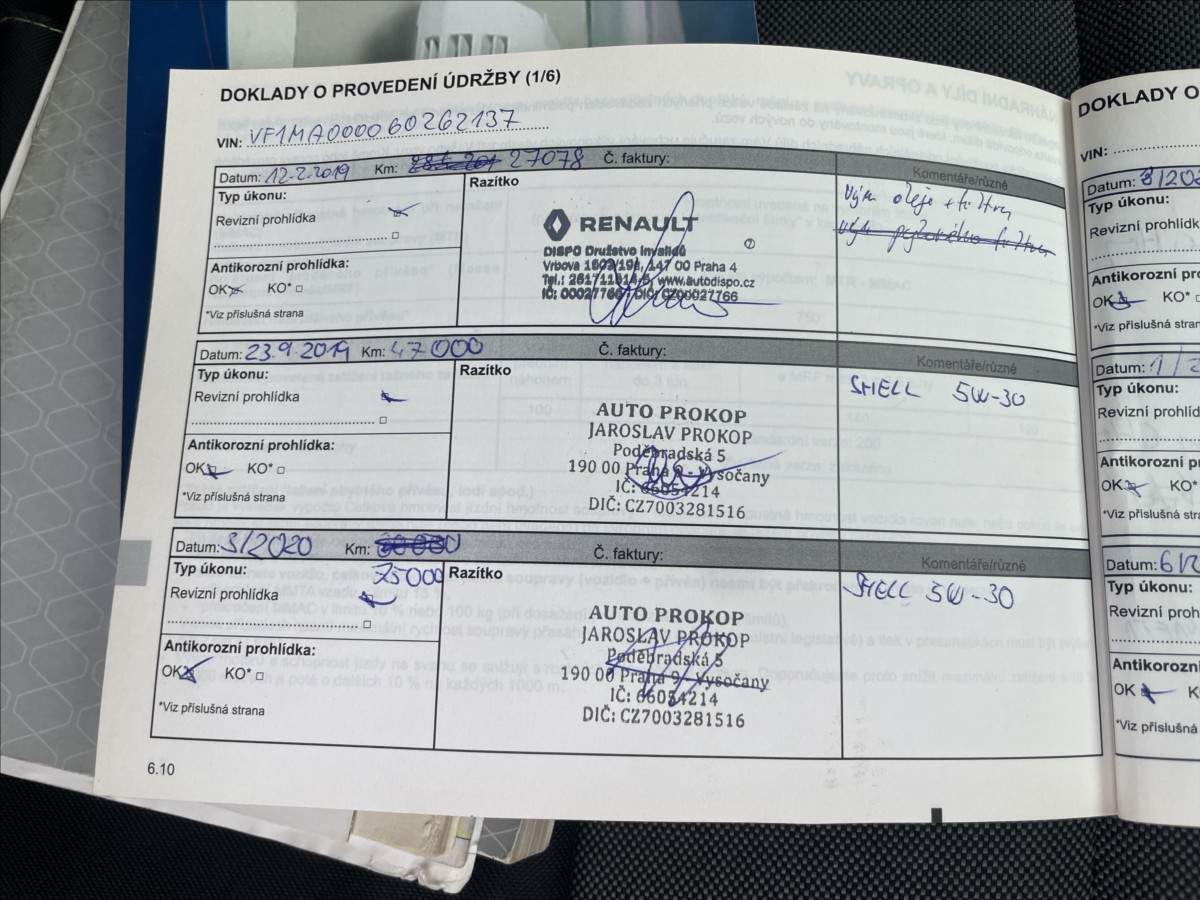 DOKLADY O PROVEDENÍ ÚDRŽBY (1/6)
VIN: VF1MA000060262137
Datum: 12.2.2019 Km: 27078 Č. faktury:
Komentáře/různé
Typ úkonu:
Revizní prohlídka
Antikorozní prohlídka:
OK KO*
*Viz příslušná strana
Razítko
RENAULT
DISPO Družstvo Invalidů
Vrbova 1609/19a, 147 00 Praha 4
www.autodispo.cz
IČ: 00027766 DIČ: CZ00027766
Vým oleje + filtru
Datum: 23.9.2019 Km: 47000 Č. faktury:
Komentáře/různé
Typ úkonu:
Revizní prohlídka
Antikorozní prohlídka:
OK KO*
*Viz příslušná strana
Razítko
AUTO PROKOP
JAROSLAV PROKOP
Poděbradská 5
190 00 Praha 9 - Vysočany
IČ: 66054214
DIČ: CZ7003281516
SHELL 5W-30
Datum: 3/2020 Km: 75000 Č. faktury:
Komentáře/různé
Typ úkonu:
Revizní prohlídka
Antikorozní prohlídka:
OK KO*
*Viz příslušná strana
Razítko
AUTO PROKOP
JAROSLAV PROKOP
Poděbradská 5
190 00 Praha 9 - Vysočany
IČ: 66054214
DIČ: CZ7003281516
SHELL 5W-30
6.10
DOKLADY O
VIN:
Datum:
Typ úkonu:
Revizní prohlíd
Antikorozní pr
OK KO*
*Viz příslušná str
Datum: 1/2
Typ úkonu:
Revizní prohlíd
Antikorozní p
OK KO*
*Viz příslušná stra
Datum: 6/2
Typ úkonu:
Revizní prohlí
Antikorozní
OK K
*Viz příslušná